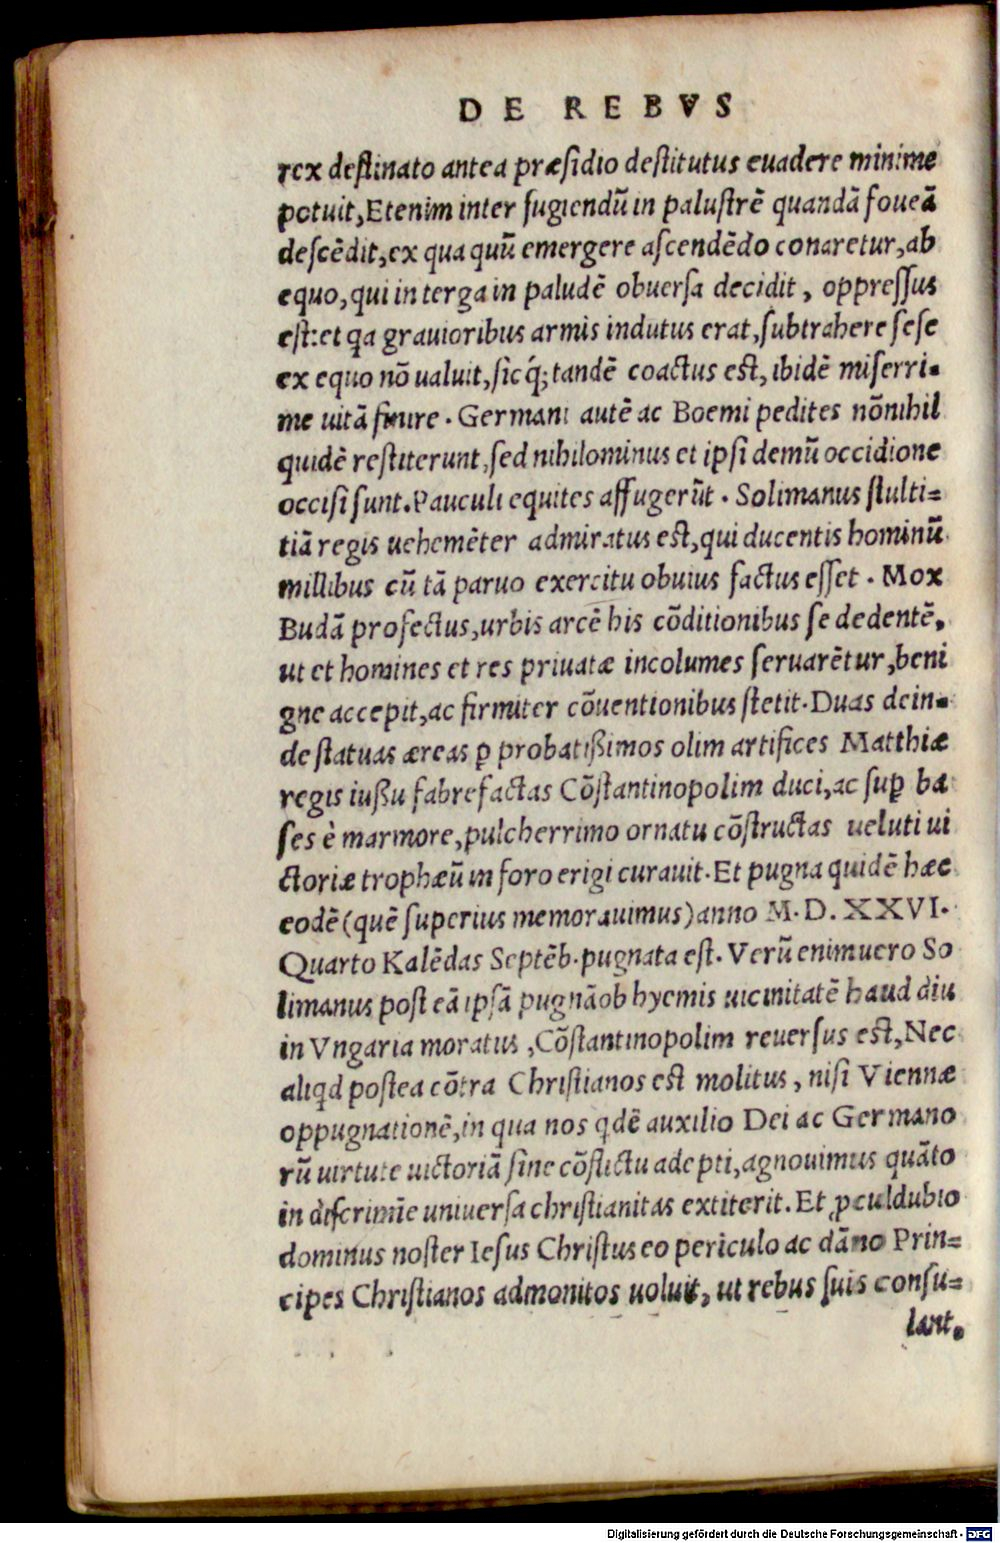 DE REBVS
rex destinato antea præsidio destitutus euadere minime
potuit, Etenim inter fugiendũ in palustrẽ quandã foueã
descẽdit, ex qua quũ emergere ascendẽdo conaretur, ab
equo, qui in terga in paludẽ obuersa decidit, oppressus
est: et qa grauioribus armis indutus erat, subtrahere sese
ex equo nõ ualuit, sic q́; tandẽ coactus est, ibidẽ miserri-
me uitã finire. Germani autẽ ac Boemi pedites nõnihil
quidẽ restiterunt, sed nihilominus et ipsi demũ occidione
occisi sunt. Pauculi equites affugerũt. Solimanus stulti=
tiã regis uehemẽter admiratus est, qui ducentis hominũ
millibus cũ tã paruo exercitu obuius factus esset. Mox
Budã profectus, urbis arcẽ his cõditionibus se dedentẽ,
ut et homines et res priuatæ incolumes seruarẽtur, beni
gne accepit, ac firmiter cõuentionibus stetit. Duas dein-
de statuas æreas ꝑ probatißimos olim artifices Matthiæ
regis iußu fabrefactas Cõstantinopolim duci, ac suꝑ ba
ses è marmore, pulcherrimo ornatu cõstructas ueluti ui
ctoriæ trophæũ in foro erigi curauit. Et pugna quidẽ hæc
eodẽ (quẽ superius memorauimus) anno M. D. XXVI.
Quarto Kalẽdas Septẽb. pugnata est. Verũ enimuero So
limanus post eã ipsã pugnã ob hyemis uicinitatẽ haud diu
in Vngaria moratus, Cõstantinopolim reuersus est, Nec
aliqd postea cõtra Christianos est molitus, nisi Viennæ
oppugnationẽ, in qua nos qdẽ auxilio Dei ac Germano
rũ uirtute uictoriã sine cõflictu adepti, agnouimus quãto
in discrimĩe uniuersa christianitas extiterit. Et ꝓculdubio
dominus noster Iesus Christus eo periculo ac dãno Prin=
cipes Christianos admonitos uoluit, ut rebus suis consu=
lant.
Digitalisierung gefördert durch die Deutsche Forschungsgemeinschaft - DFG